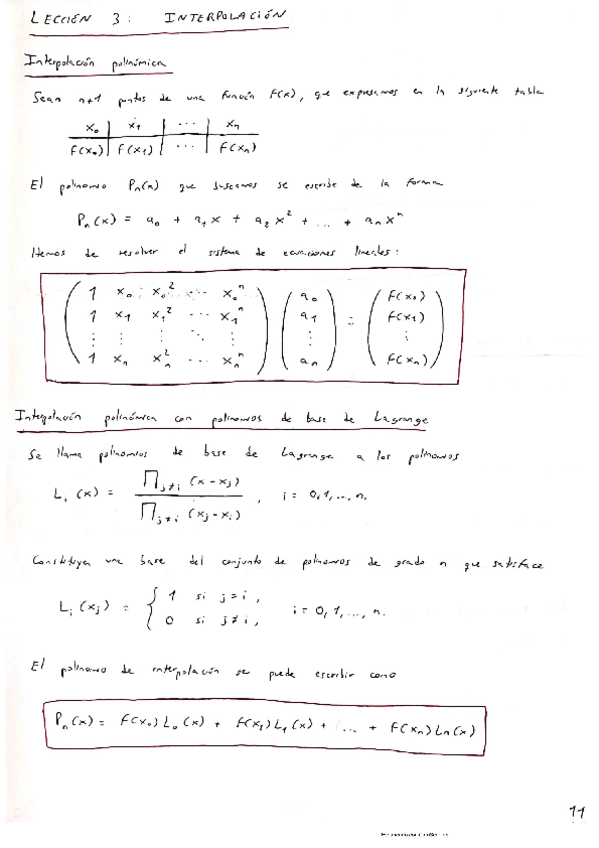 LECCIÓN 3: INTERPOLACIÓN
Interpolación polinómica
Sean n+1 puntos de una función f(x), que expresamos en la siguiente tabla
x₀ | x₁ | ... | xₙ
f(x₀) | f(x₁) | ... | f(xₙ)
El polinomio Pₙ(x) que buscamos se escribe de la forma
Pₙ(x) = a₀ + a₁x + a₂x² + ... + aₙxⁿ
Hemos de resolver el sistema de ecuaciones lineales:
1 x₀ x₀² ... x₀ⁿ a₀ f(x₀)
1 x₁ x₁² ... x₁ⁿ a₁ = f(x₁)
⋮ ⋮ ⋮ ⋱ ⋮ ⋮ ⋮
1 xₙ xₙ² ... xₙⁿ aₙ f(xₙ)
Interpolación polinómica con polinomios de base de Lagrange
Se llama polinomios de base de Lagrange a los polinomios
Lᵢ(x) = ∏_{j≠i} (x-xⱼ) / ∏_{j≠i} (xⱼ-xᵢ) , i = 0,1,...,n.
Constituyen una base del conjunto de polinomios de grado n que satisface
Lᵢ(xⱼ) = { 1 si j=i,
0 si j≠i, i = 0,1,...,n.
El polinomio de interpolación se puede escribir como
Pₙ(x) = f(x₀)L₀(x) + f(x₁)L₁(x) + ... + f(xₙ)Lₙ(x)
11